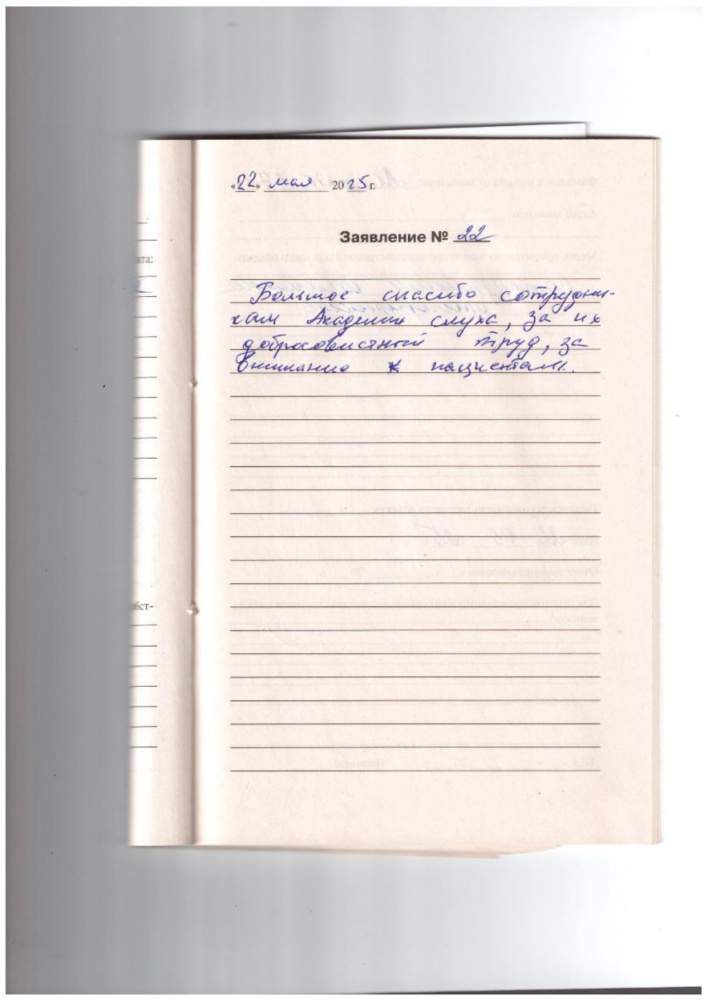 «22» мая 2025 г.
Заявление № 22
Большое спасибо сотрудни-
кам Академии слуха, за их
добросовистный труд, за
внимание к пациентам.
ата:
бст-